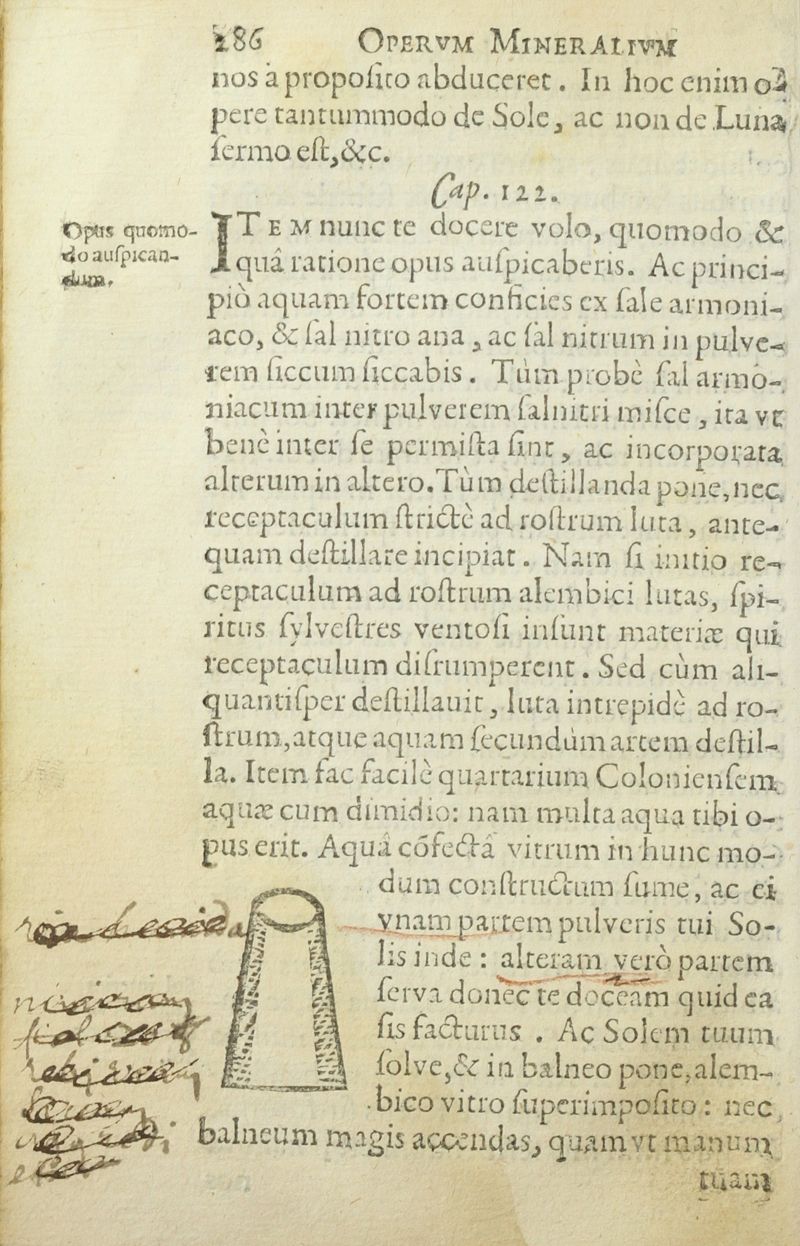 186 OPERVM MINERALIVM
nos à proposito abduceret. In hoc enim o-
pere tantummodo de Sole, ac non de Luna
sermo est, &c.
Cap. 122.
Opus quomo-
do auspican-
dum.
ITEM nunc te docere volo, quomodo &
quâ ratione opus auspicaberis. Ac princi-
piò aquam fortem conficies ex sale armoni-
aco, & sal nitro ana, ac sal nitrum in pulve-
rem siccum siccabis. Tùm probè sal armo-
niacum inter pulverem salnitri misce, ita vt
benè inter se permista sint, ac incorporata
alterum in altero. Tùm destillanda pone, nec
receptaculum strictè ad rostrum luta, ante-
quam destillare incipiat. Nam si initio re-
ceptaculum ad rostrum alembici lutas, spi-
ritus sylvestres ventosi insunt materiæ qui
receptaculum disrumperent. Sed cùm ali-
quantisper destillauit, luta intrepidè ad ro-
strum, atque aquam secundùm artem destil-
la. Item fac facilè quartarium Coloniensem
aquæ cum dimidio: nam multa aqua tibi o-
pus erit. Aquâ cõfectâ vitrum in hunc mo-
dum constructum sume, ac ei
vnam partem pulveris tui So-
lis inde: alteram verò partem
serva donec te doceam quid ea
sis facturus. Ac Solem tuum
solve, & in balneo pone, alem-
bico vitro superimposito: nec
balneum magis accendas, quam vt manum
tuam